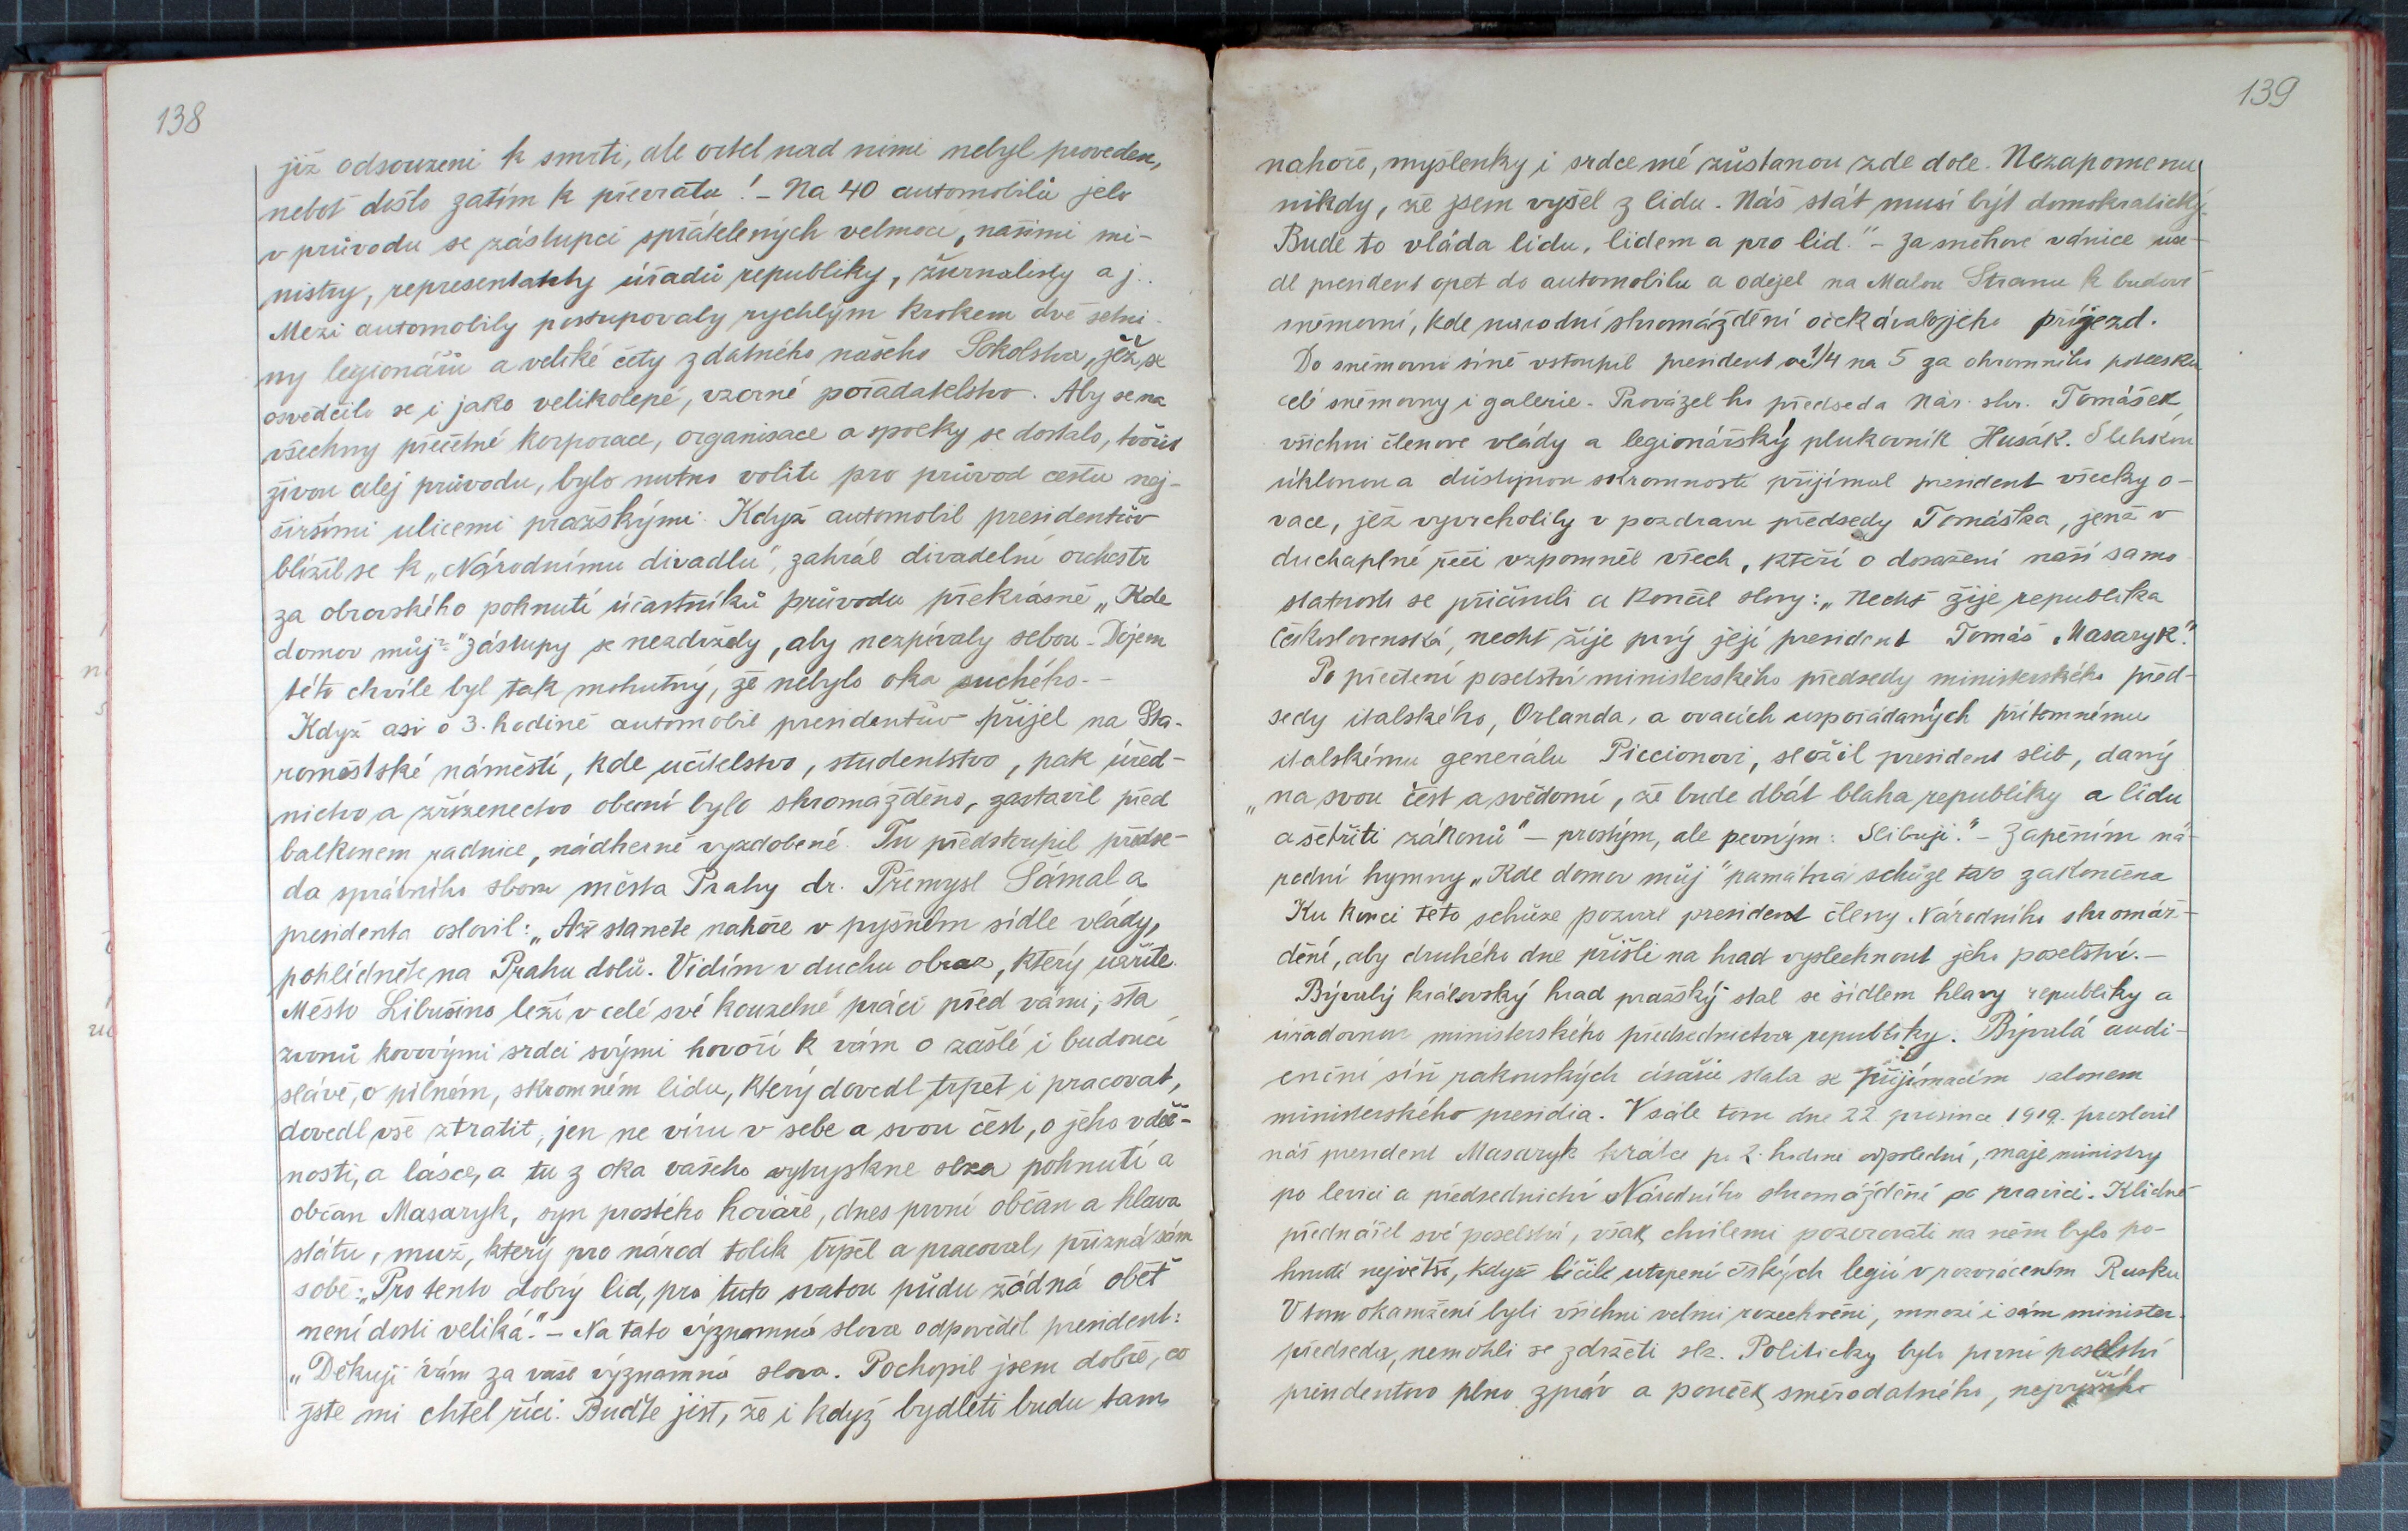 138
již odsouzeni k smrti, ale ortel nad nimi nebyl proveden,
neboť došlo zatím k převratu! – Na 40 automobilů jelo
v průvodu se zástupci spřátelených velmocí, našimi mi-
nistry, representanty úřadů republiky, žurnalisty a j..
Mezi automobily postupovaly rychlým krokem dvě setni-
ny legionářů a veliké čety zdatného našeho Sokolstva, jež se
osvědčilo se i jako velikolepé, vzorné pořadatelstvo. Aby se na
všechny přečetné korporace, organisace a spolky se dostalo, tvořiti
živou alej průvodu, bylo nutno voliti pro průvod cestu nej-
širšími ulicemi pražskými. Když automobil presidentův
blížil se k „Národnímu divadlu", zahrál divadelní orchestr
za obrovského pohnutí účastníků průvodu překrásně „Kde
domov můj". Zástupy se nezdržely, aby nezpívaly sebou. Dojem
této chvíle byl tak mohutný, že nebylo oka suchého. –
Když asi o 3. hodině automobil presidentův přijel na Sta-
roměstské náměstí, kde učitelstvo, studentstvo, pak úřed-
nictvo a zřízenectvo obecní bylo shromážděno, zastavil před
balkonem radnice, nádherně vyzdobené. Tu předstoupil předse-
da správního sboru města Prahy dr. Přemysl Šámal a
presidenta oslovil: „Až stanete nahoře v pyšném sídle vlády,
pohlédněte na Prahu dolů. Vidím v duchu obraz, který uzříte.
Město Libušino leží v celé své kouzelné práci před vámi, sta
zvonů kovovými srdci svými hovoří k vám o zašlé i budoucí
slávě, o pilném, skromném lidu, který dovedl trpět i pracovat,
dovedl vše ztratit, jen ne víru v sebe a svou čest, o jeho vděč-
nosti, a lásce, a tu z oka vašeho vytryskne slza pohnutí a
občan Masaryk, syn prostého kováře, dnes první občan a hlava
státu, muž, který pro národ tolik trpěl a pracoval, přizná sám
sobě: „Pro tento dobrý lid, pro tuto svatou půdu žádná oběť
není dosti veliká." – Na tato významná slova odpověděl president:
„Děkuji vám za vaše významná slova. Pochopil jsem dobře, co
jste mi chtěl říci. Buďte jist, že i když bydleti budu tam
139
nahoře, myšlenky i srdce mé zůstanou zde dole. Nezapomenu
nikdy, že jsem vyšel z lidu. Náš stát musí býť domokratický.
Bude to vláda lidu, lidem a pro lid." – Za sněhové vánice use-
dl president opět do automobilu a odejel na Malou Stranu k budově
sněmovní, kde národní shromáždění očekávalo jeho příjezd.
Do sněmovní síně vstoupil president ve 1/4 na 5 za ohromného potlesku
celé sněmovny i galerie. Provázel ho předseda nár. shr. Tomášek,
všichni členové vlády a legionářský plukovník Husák. S lehkou
úklonou a důstojnou skromností přijímal president všecky o-
vace, jež vyvrcholily v pozdravu předsedy Tomáška, jenž v
duchaplné řeči vzpomněl všech, kteří o dosažení naší samo-
statnosti se přičinili a končil slovy: „Nechť žije republika
Československá, nechť žije prvý její president Tomáš Masaryk."
Po přečtení poselství ministerského předsedy ministerského před-
sedy italského, Orlanda, a ovacích uspořádaných přítomnému
italskému generálu Piccionovi, složil president slib, daný
„na svou čest a svědomí, že bude dbát blaha republiky a lidu
a šetřiti zákonů" – prostým, ale pevným: Slibuji." – Zapěním ná-
rodní hymny „Kde domov můj" památná schůze tato zakončena
Ku konci této schůze pozval president členy Národního shromáž-
dění, aby druhého dne přišli na hrad vyslechnout jeho poselství. –
Bývalý královský hrad pražský stal se sídlem hlavy republiky a
úřadovnou ministerského předsednictva republiky. Bývalá audi-
enční síň rakouských císařů stala se přijímacím salonem
ministerského presidia. V sále tom dne 22. prosince 1919. proslovil
náš president Masaryk krátce po 2. hodině odpolední, maje ministry
po levici a předsednictví Národního shromáždění po pravici. Klidně
přednášel své poselství, však chvílemi pozorovati na něm bylo po-
hnutí největší, když líčil utrpení českých legií v rozvráceném Rusku
V tom okamžení byli všichni velmi rozechvěni, mnozí i sám minister.
předseda, nemohli se zdržeti slz. Politicky bylo první poselství
presidentovo plno zpráv a pouček směrodatného, nejvyššího